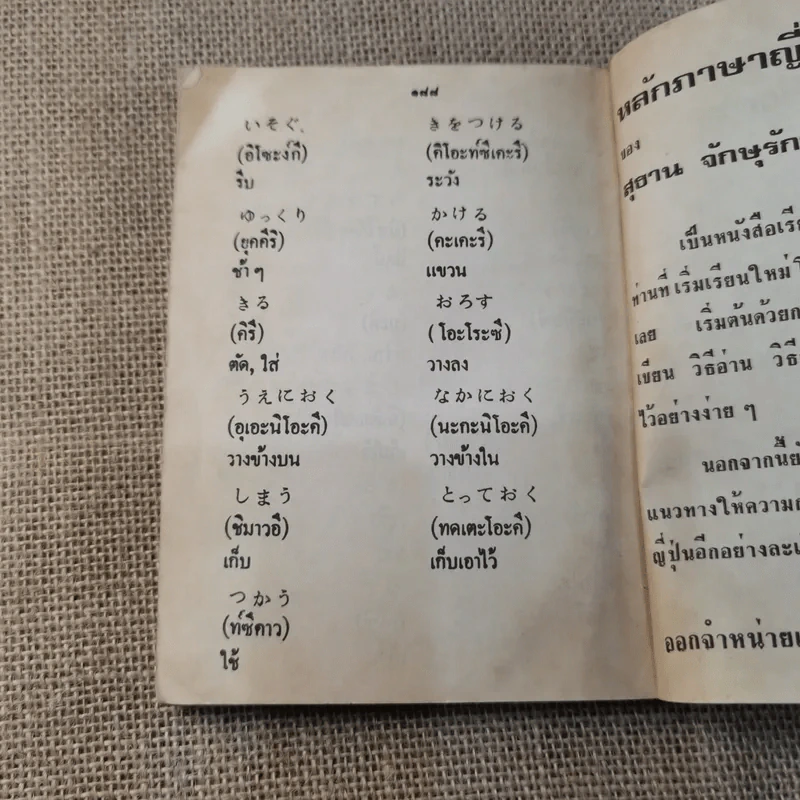 ๑๘๘
いそぐ
(อิโซะงกึ)
รีบ
ゆっくり
(ยุคคึริ)
ช้า ๆ
きる
(คิรึ)
ตัด, ใส่
うえにおく
(อุเอะนิโอะคึ)
วางข้างบน
しまう
(ชิมาวอึ)
เก็บ
つかう
(ท์ซึคาว)
ใช้
きをつける
(คิโอะท์ซึเคะรึ)
ระวัง
かける
(คะเคะรึ)
แขวน
おろす
(โอะโระซึ)
วางลง
なかにおく
(นะกะนิโอะคึ)
วางข้างใน
とっておく
(ทคเตะโอะคึ)
เก็บเอาไว้
หลักภาษาญี่
ของ
สุธาน จักษุรัก
เป็นหนังสือเรีย
ท่านที่เริ่มเรียนใหม่
เลย เริ่มต้นด้วยก
เขียน วิธีอ่าน วิธี
ไว้อย่างง่าย ๆ
นอกจากนี้ยั
แนวทางให้ความ
ญี่ปุ่นอีกอย่างละเ
ออกจำหน่ายแ